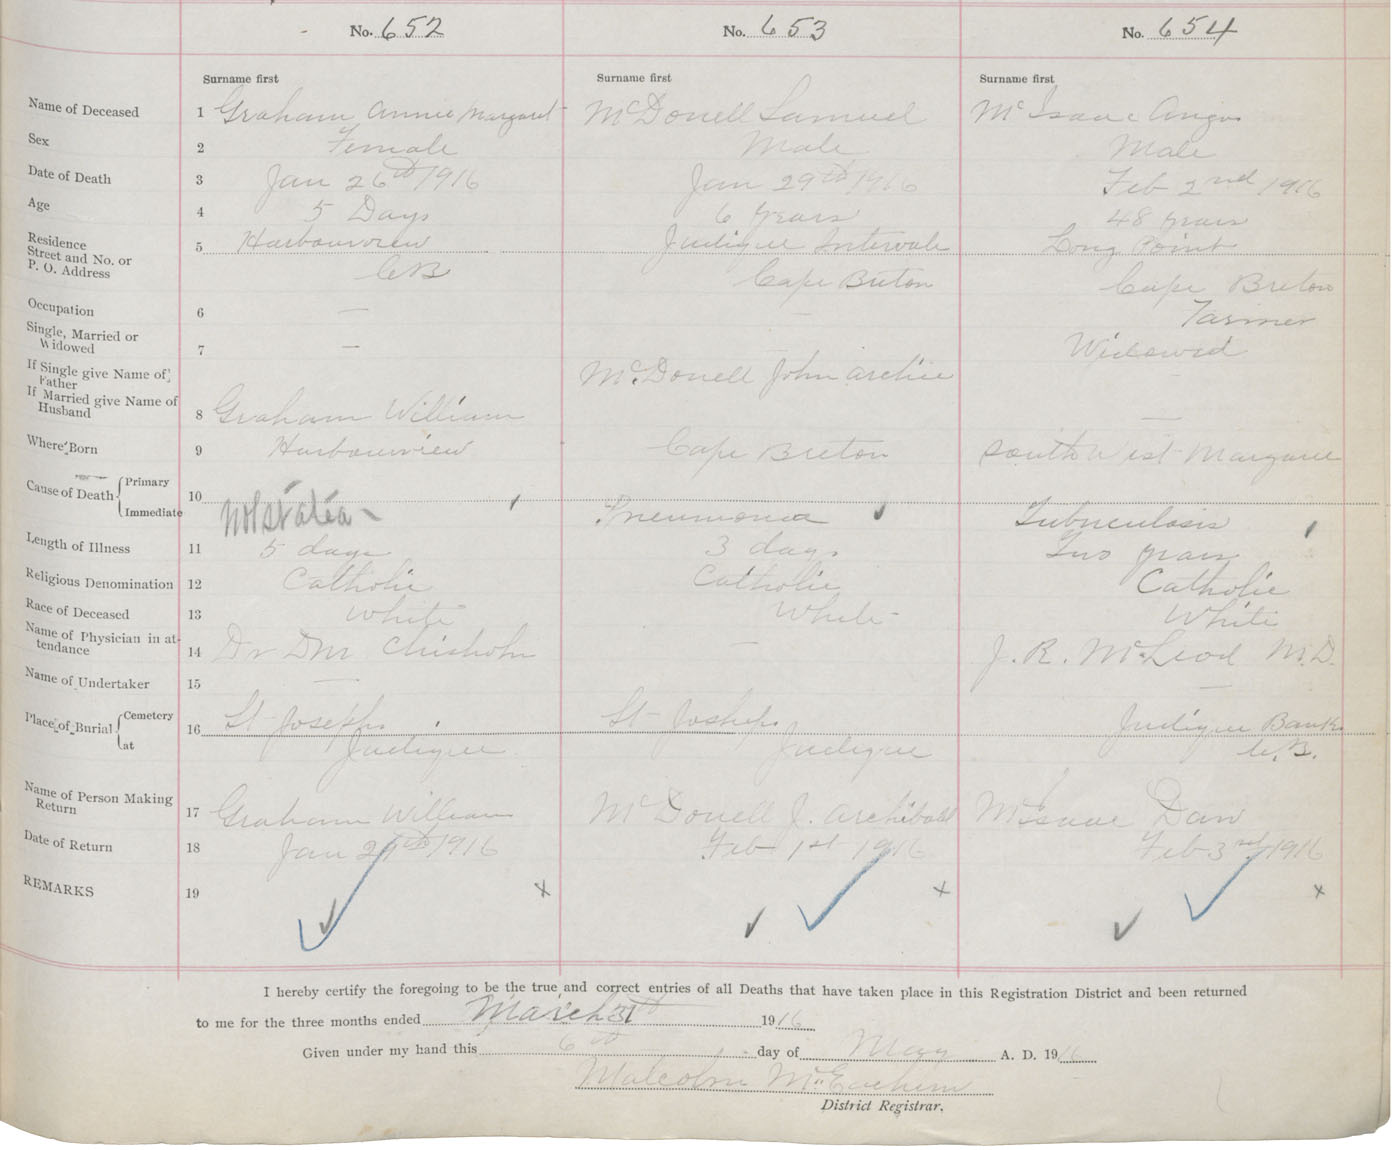 No. 652 No. 653 No. 654
Surname first Surname first Surname first
Name of Deceased 1 Graham Annie Margaret McDonell Samuel McIsaac Angus
Sex 2 Female Male Male
Date of Death 3 Jan 26th 1916 Jan 29th 1916 Feb 2nd 1916
Age 4 5 Days 6 years 48 years
Residence 5 Harbourview Judique Intervale Long Point
Street and No. or
P. O. Address CB Cape Breton Cape Breton
Occupation 6 — — Farmer
Single, Married or
Widowed 7 — Widowed
If Single give Name of
Father McDonell John Archie
If Married give Name of
Husband 8 Graham William —
Where Born 9 Harbourview Cape Breton South West Margaree
Cause of Death Primary
10
Immediate not stated - Pneumonia Tuberculosis
Length of Illness 11 5 days 3 days Two years
Religious Denomination 12 Catholic Catholic Catholic
Race of Deceased 13 White White White
Name of Physician in at-
tendance 14 Dr DM Chisholm — J. R. McLeod M.D.
Name of Undertaker 15 — —
Place of Burial Cemetery 16 St Josephs St Joshephs Judique Banks
at Judique Judique C.B.
Name of Person Making
Return 17 Graham William McDonell J. Archibald McIsaac Dan
Date of Return 18 Jan 1916 Feb 1st 1916 Feb 3rd 1916
REMARKS 19 x x x
I hereby certify the foregoing to be the true and correct entries of all Deaths that have taken place in this Registration District and been returned
to me for the three months ended March 31th 1916
Given under my hand this 6th day of May A. D. 1916
Malcolm McEachern
District Registrar.